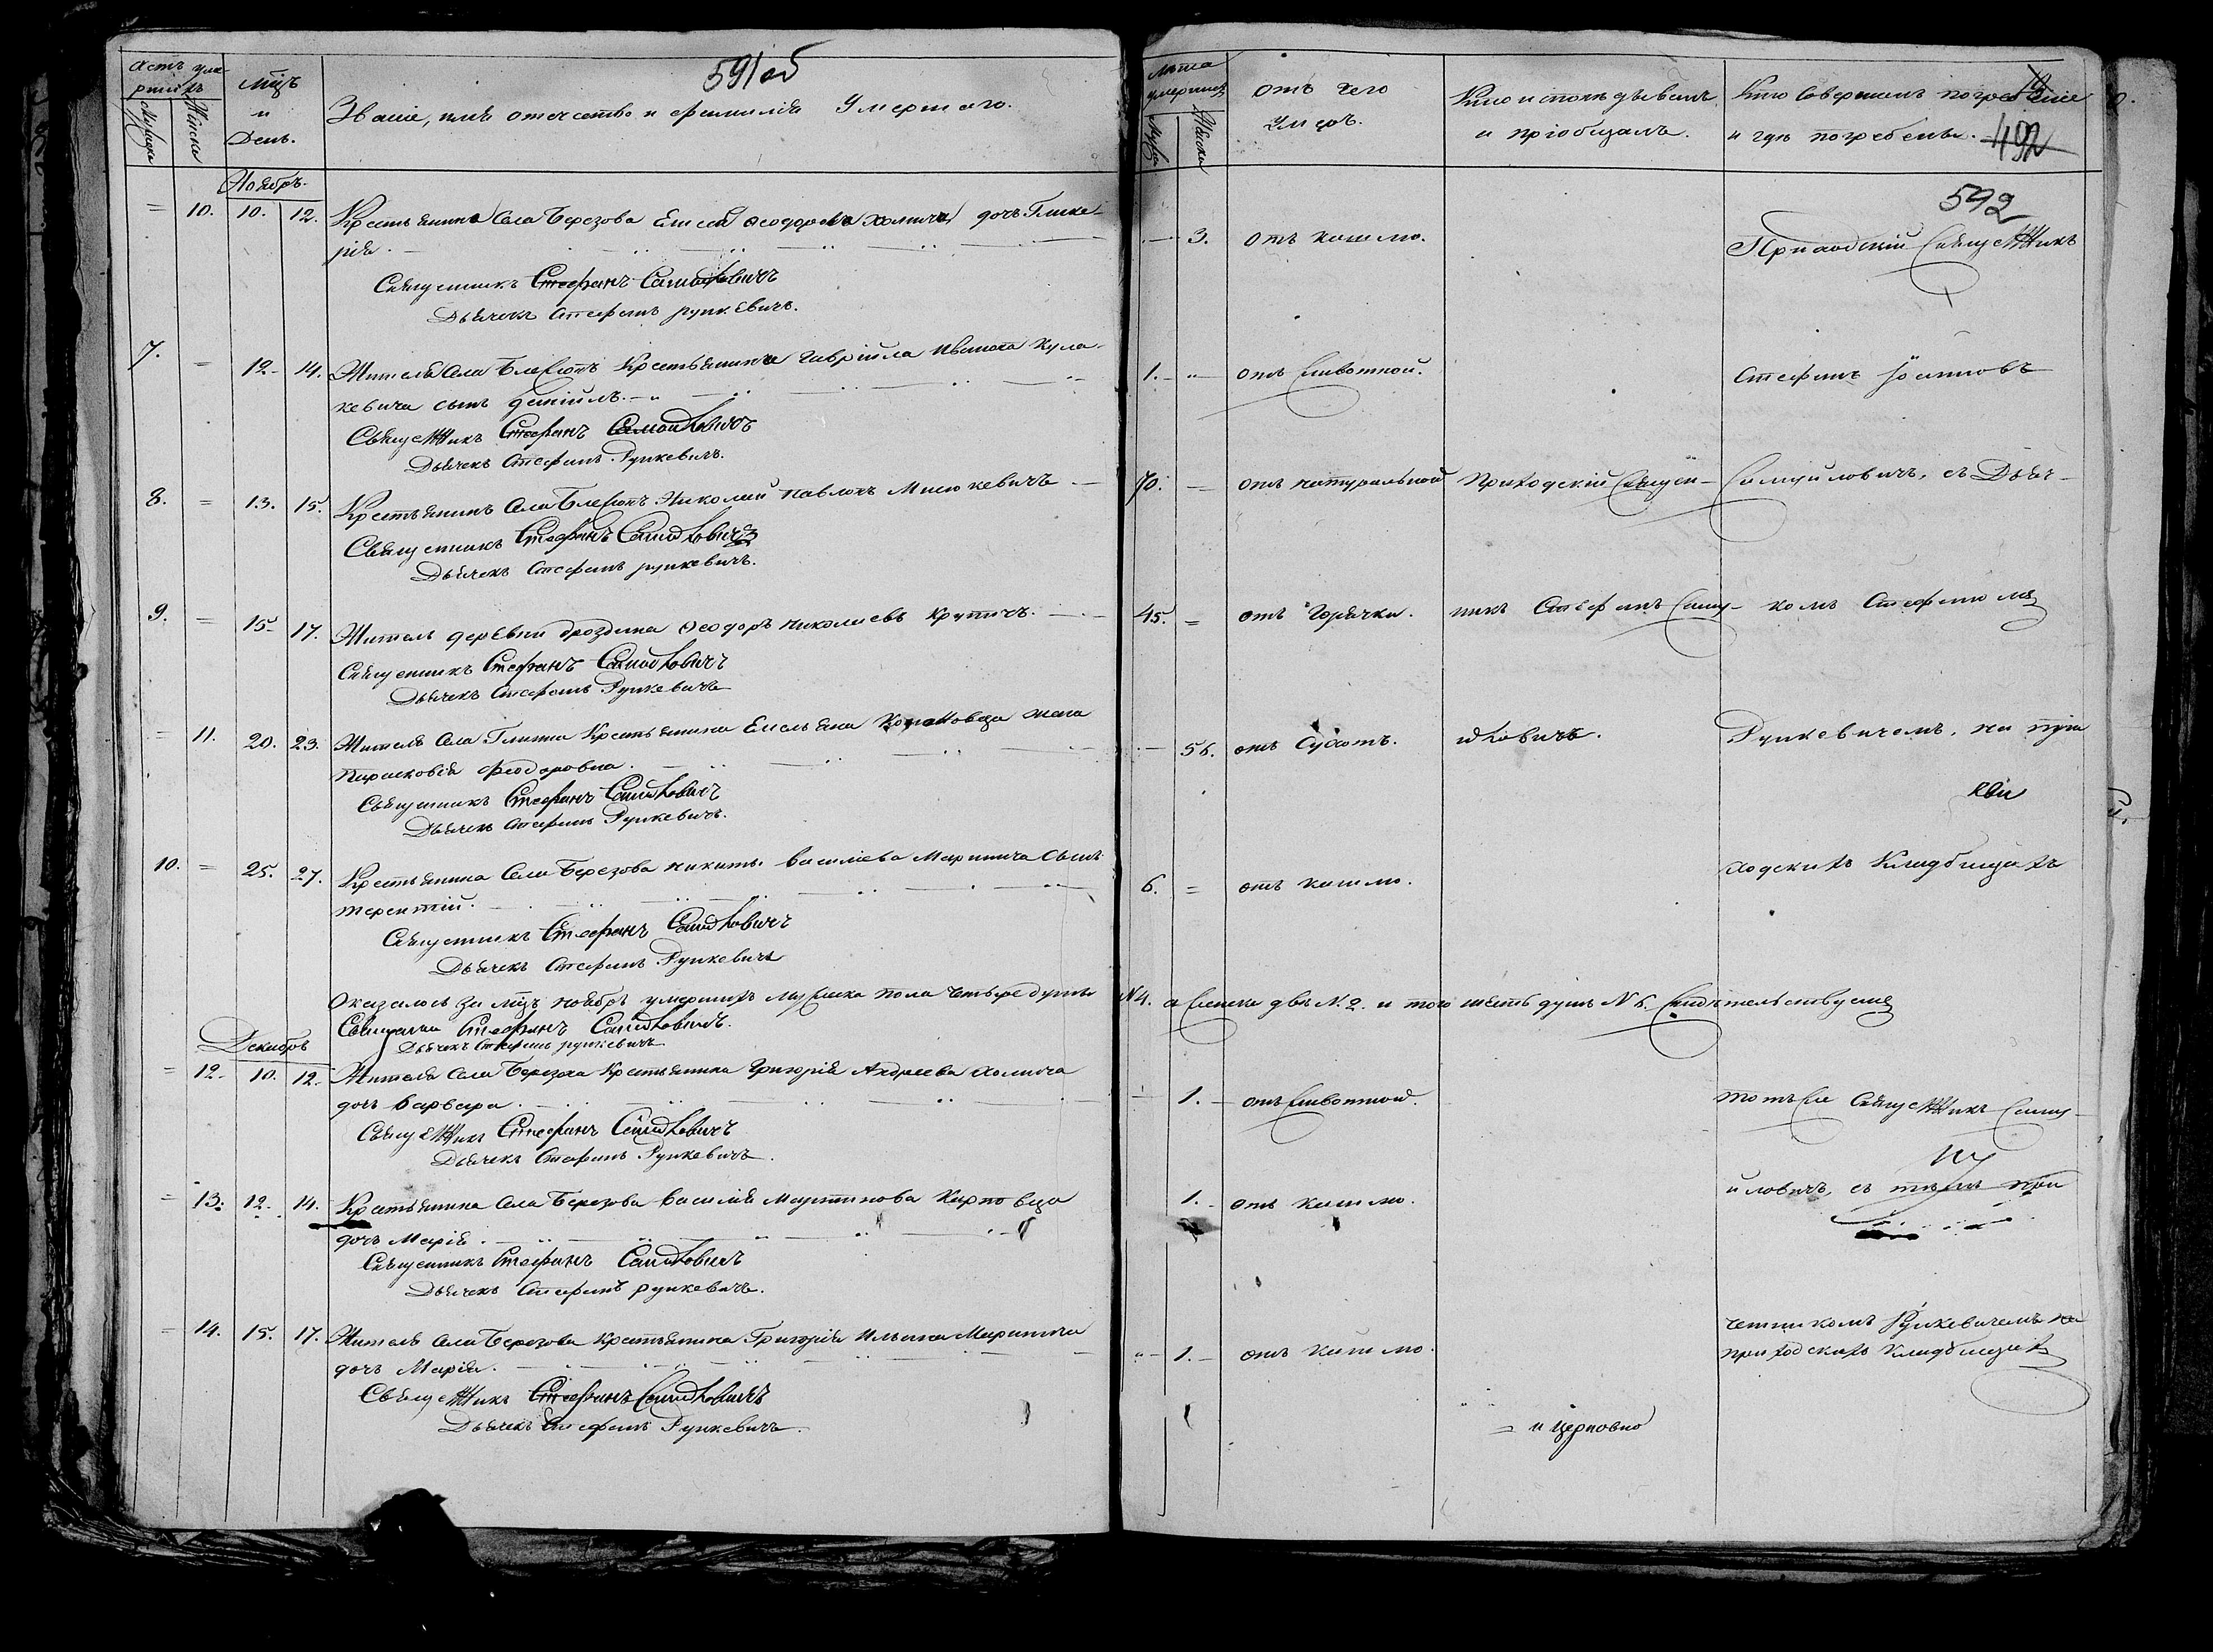 591 об
Счетъ умершихъ
Мужеска
Женска
Мцъ и День.
Званіе, имя отечество и фамилія Умершаго.
Ноябрь.
= 10. 10. 12. Крестьянина Села Березова Елисея Феодорова Холмича дочъ Глике-
рія.
Священникъ Стефанъ Самойловичъ
Дьячекъ Стефанъ Рункевичъ.
7. = 12. 14. Жителя Села Крестьянина Гавріила Иванова Кула-
кевича сынъ Даніилъ.
Священникъ Стефанъ Самойловичъ
Дьячекъ Стефанъ Рункевичъ.
8. = 13. 15. Крестьянинъ Села Николай Павловъ Мисюкевичъ
Священникъ Стефанъ Самойловичъ
Дьячекъ Стефанъ Рункевичъ.
9. = 15. 17. Житель деревни Дроздина Феодоръ Николаевъ Крупичъ.
Священникъ Стефанъ Самойловичъ
Дьячекъ Стефанъ Рункевичъ
= 11. 20. 23. Жителя Села Глинна Крестьянина Емельяна жена
Парасковія Феодоровна.
Священникъ Стефанъ Самойловичъ
Дьячекъ Стефанъ Рункевичъ.
10. = 25. 27. Крестьянина Села Березова Никиты Василіева Маринича сынъ
Терентій.
Священникъ Стефанъ Самойловичъ
Дьячекъ Стефанъ Рункевичъ
Оказалось за мцъ ноябрь умершихъ мужеска пола четыре души
Священникъ Стефанъ Самойловичъ.
Дьячекъ Стефанъ Рункевичъ
Декабрь
= 12. 10. 12. Жителя Села Березова Крестьянина Григорія Андреева Холмича
дочъ Варвара.
Священникъ Стефанъ Самойловичъ
Дьячекъ Стефанъ Рункевичъ.
= 13. 12. 14. Крестьянина Села Березова Василія Мартинова Карповца
дочъ Марія.
Священникъ Стефанъ Самойловичъ
Дьячекъ Стефанъ Рункевичъ.
= 14. 15. 17. Жителя Села Березова Крестьянина Григорія Ильина Маринича
дочъ Марія.
Священникъ Стефанъ Самойловичъ
Дьячекъ Стефанъ Рункевичъ.
Лѣта умершихъ
Мужес
Женска
Отъ чего Умеръ.
Кто исповѣдывалъ и пріобщалъ.
Кто Совершилъ погребеніе и гдѣ погребены.
492
592
3. отъ кашлю.
Приходскій Священникъ
1. отъ Животной.
Стефанъ Іоанновъ
70. отъ натуральной Приходскій Священ- Самуйловичъ, съ Дьяч-
45. = отъ Горячки. никъ Стефанъ Саму- комъ Стефаномъ
56. отъ Сухотъ. йловичъ. Рункевичемъ, на при
6. = отъ кашлю. ходскихъ Кладбищахъ
N 4. а Женска двѣ N. 2. и того шесть душъ N 6. Свидѣтельствуемъ
1. отъ Животной. тотъ же Священникъ Саму-
1. отъ кашлю. йловичъ, съ
1. отъ кашлю. Рункевичемъ на
приходскихъ Кладбищахъ
= и церковно